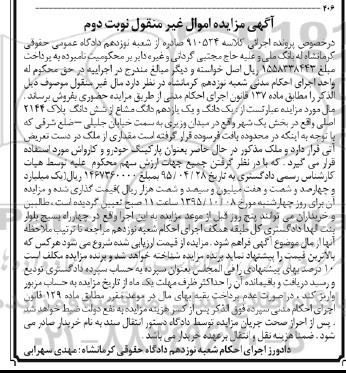 ۴۰۶
آگهی مزایده اموال غیر منقول نوبت دوم
درخصوص پرونده اجرائی کلاسه ۹۱۰۵۲۴ صادره از شعبه نوزدهم دادگاه عمومی حقوقی
کرمانشاه له بانک ملی و علیه حاج مجتبی گردانی و غیره دایر بر محکومیت نامبرده به پرداخت
مبلغ ۱۵۵۸۳۳۸۴۴۳ ریال اصل خواسته و دیگر مبالغ مندرج در اجراییه در حق محکوم له
واحد اجرای احکام مدنی شعبه نوزدهم کرمانشاه در نظر دارد مال غیر منقول موصوف ذیل
الذکر را مطابق ماده ۱۳۷ قانون اجرای احکام مدنی از طریق مزایده حضوری بفروش برساند .
مال مورد مزایده عبارتست از : یک دانگ و یک یازدهم دانگ مشاع از شش دانگ پلاک ۲۱۴۴
اصلی واقع در بخش یک شهر واقع در میدان وزیری به سمت خیابان جلیلی – ضلع شرقی که
با توجه به اینکه در محدوده بافت فرسوده قرار گرفته است مقداری از ملک در دست تعریض
آتی قرار دارد و ملک مذکور در حال حاضر بعنوان پارکینگ خودرو و کارواش مورد استفاده
قرار می گیرد . که با در نظر گرفتن جمیع جهات ارزش سهم محکوم علیه توسط هیات
کارشناس رسمی دادگستری به تاریخ ۹۵/۰۴/۲۸ بمبلغ ۱۴۶۷۳۶۰۰۰۰ ریال(یک میلیارد
و چهارصد و شصت و هفت میلیون و سیصد و شصت هزار ریال )قیمت گذاری شده و مزایده
آن برای روز چهارشنبه مورخ ۱۳۹۵/۱۰/۰۸ ساعت ۱۱ صبح تعیین گردیده است ، طالبین
و خریداران می توانند پنج روز قبل از موعد مزایده به این اجرا واقع در چهارراه بسیج بلوار
بنت الهدا دادگستری کل طبقه همکف اجرای احکام شعبه نوزدهم مراجعه تا ترتیب ملاحظه
آنها از مال موضوع آگهی فراهم شود . مزایده از قیمت ارزیابی شده شروع می شود هرکس که
بالاترین قیمت را پیشنهاد نماید برنده مزایده شناخته خواهد شد و برنده مزایده مکلف است
۱۰ درصد بهای پیشنهادی را فی المجلس بعنوان سپرده به حساب سپرده دادگستری تودیع
و رسید دریافت و باقیمانده آن را حداکثر ظرف مهلت یک ماه از تاریخ مزایده به حساب مزبور
واریز کند ، در صورت عدم پرداخت بقیه بهای مال در موعد مقرر مطابق ماده ۱۲۹ قانون
اجرای احکام مدنی سپرده فوق الذکر پس از کسر هزینه مزایده به نفع دولت ضبط خواهد شد
. پس از احراز صحت جریان مزایده توسط دادگاه دستور انتقال سند به نام خریدار صادر می
شود . ضمنا هزینه نقل و انتقال برعهده خریدار می باشد .
دادورز اجرای احکام شعبه نوزدهم دادگاه حقوقی کرمانشاه: مهدی سهرابی